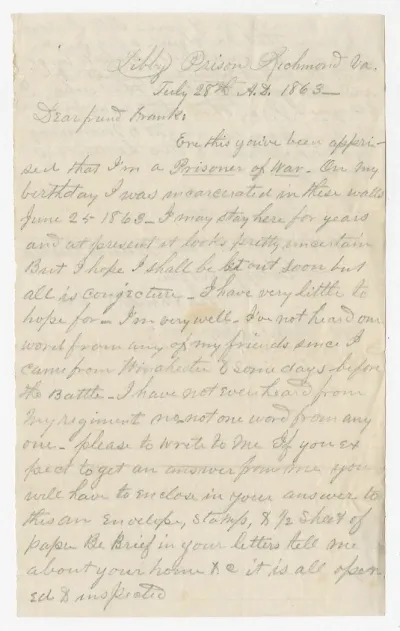 Libby Prison Richmond Va.
July 28th A.D. 1863—
Dear friend Frank.
Ere this you've been appri-
sed that I'm a Prisoner of War. On my
birthday I was incarcerated in these walls
June 25 1863— I may stay here for years
and at present it looks pretty uncertain
But I hope I shall be let out soon but
all is conjecture— I have very little to
hope for— I'm very well— I've not heard one
word from any of my friends since I
came from Winchester & some days before
the Battle— I have not ever heard from
my regiment no not one word from any
one— please to write to me If you ex
pect to get an answer from me you
will have to enclose in your answer to
this an Envelope, Stamp, & ½ Sheet of
paper Be Brief in your letters tell me
about your home &c it is all open
ed & inspected